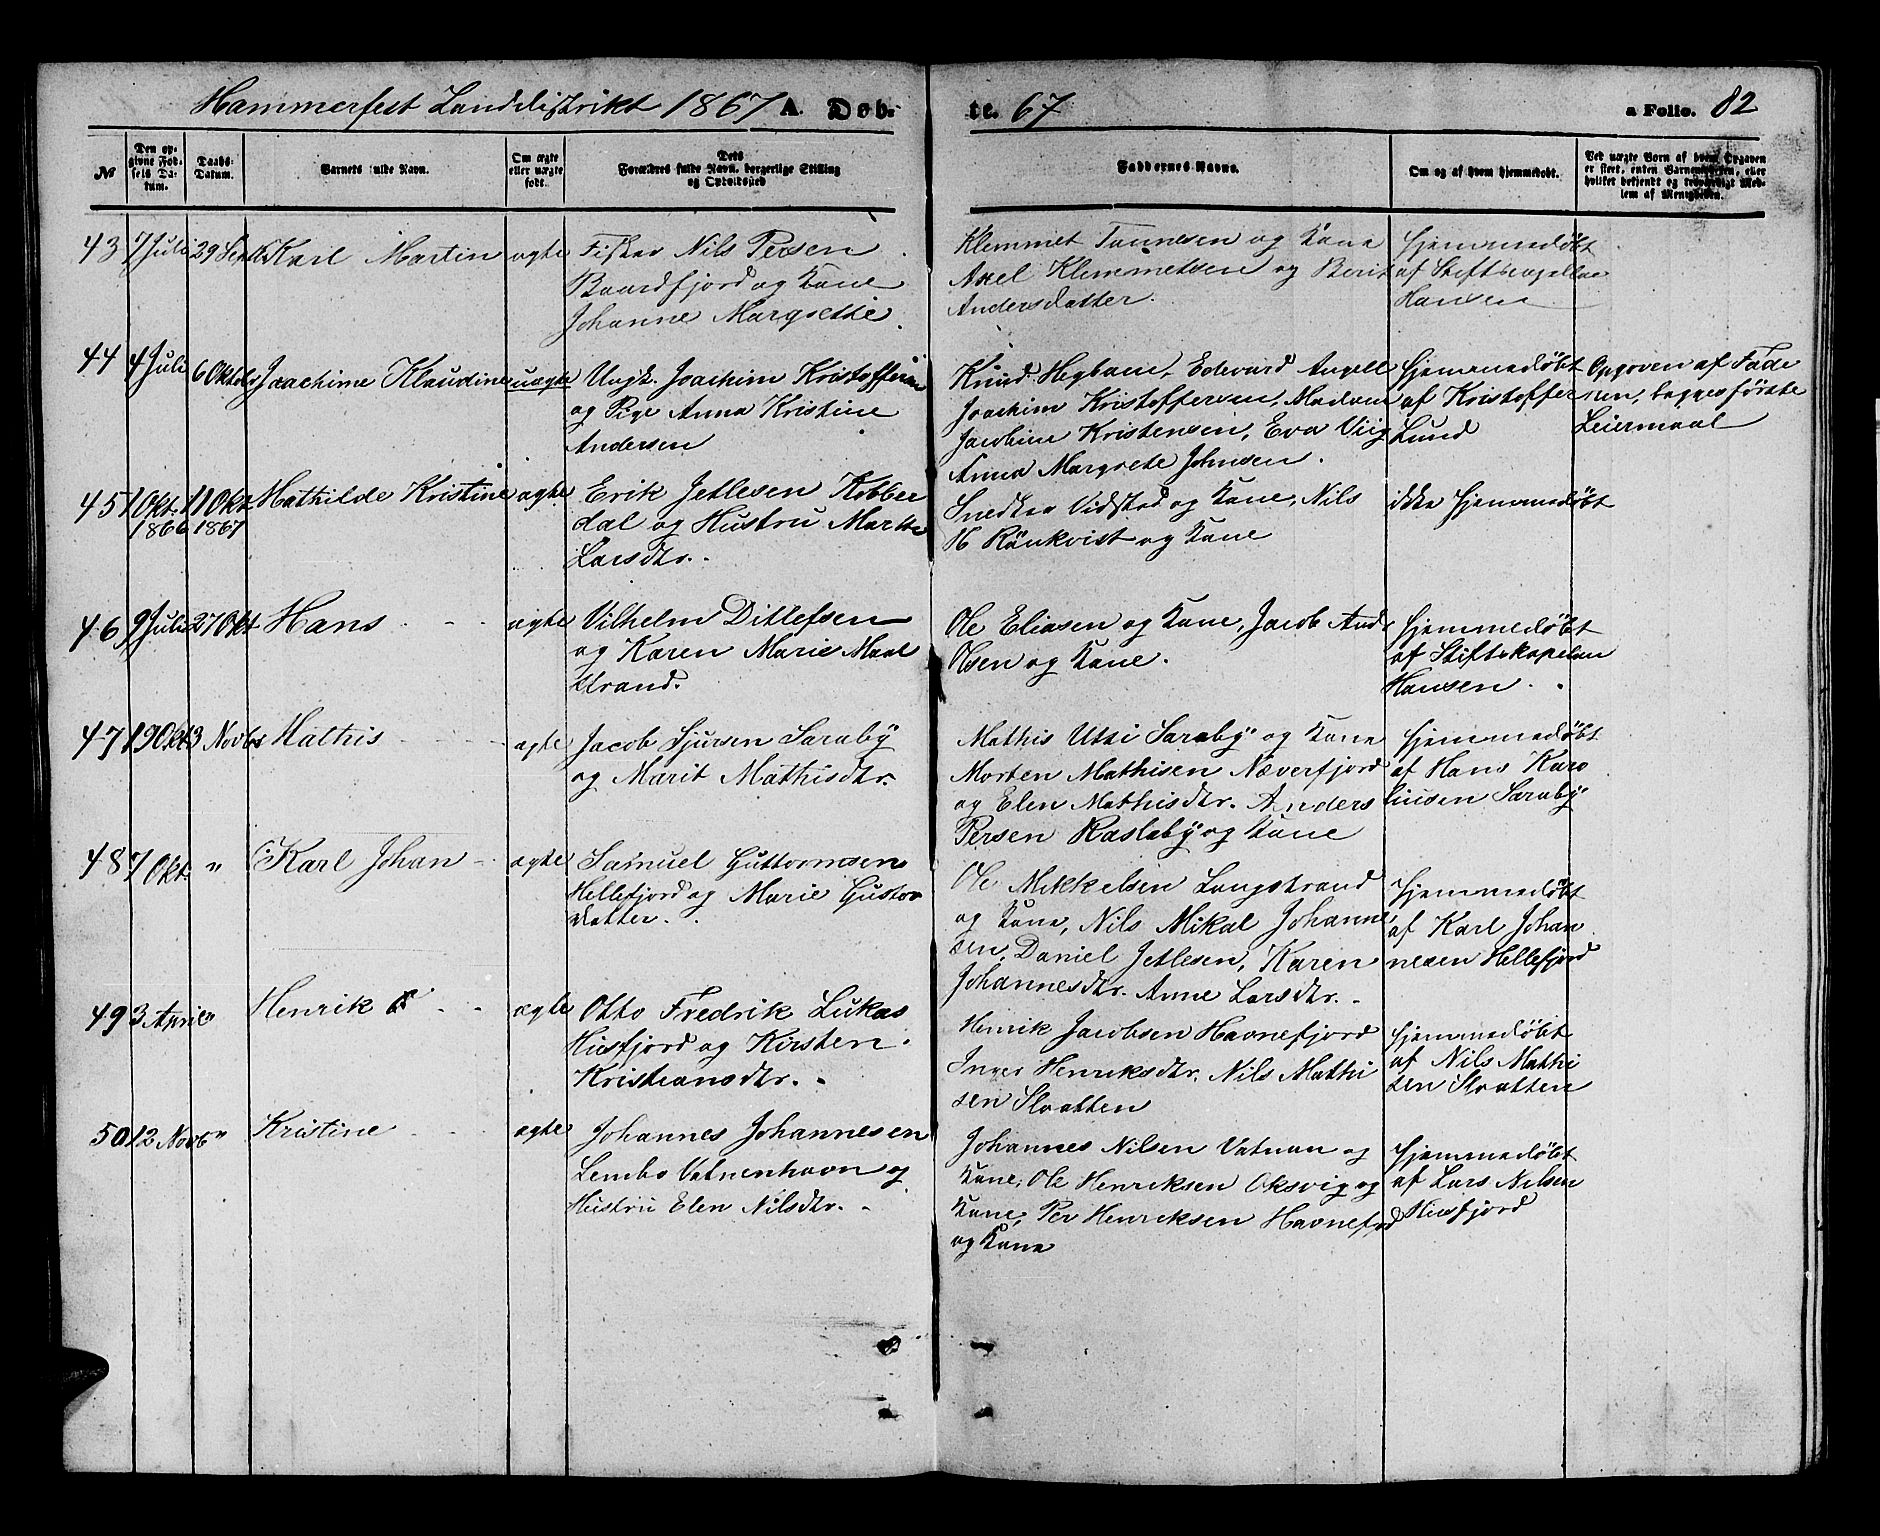 Hammerfest Landdistrikt 1867 A. Døb-
te. 67 a Folio. 82
№
Den op-
givne Fød-
sels Da-
tum.
Daabs-
Datum.
Barnets fulde Navn.
Om ægte
eller uægte
født.
Dets
Forældres fulde Navn, borgerlige Stilling
og Opholdssted
Faddernes Navne.
Om og af hvem hjemmedøbt.
Ved uægte Børn af hvem Opgaven
er skeet, enten Barnemoderen, eller
hvilket bekjendt og troværdigt Med-
lem af Menigheden.
43 7 Juli 29 Sept Karl Martin ægte Fisker Nils Persen
Baardfjord og Kone
Johanne Margrethe
Klemmet Tønnesen og Kone
Axel Klemmetsen og Berit
Andersdatter.
Hjemmedøbt
af Stiftscapellan
Hansen
44 4 Juli 6 Oktobr Joachime Klaudine uægte Ungk. Joachim Kristoffersen
og Pige Anna Kristine
Andersen
Knud Hegbom, Edevard Angell
Joachim Kristoffersen, Madame
Jacobine Kristensen, Eva Viig
Anna Margrete Johnsen.
Hjemmedøbt
af Kristoffer
Lund
Opgoven af Fade
ren, begges første
Leiermaal
45 1 Okt. 1866 11 Okt. 1867 Mathilde Kristine ægte Erik Jetlesen Kobbe
dal og Hustru Marthe
Larsdtr.
Snedker Vidsted og Kone, Nils
H Rönkvist og Kone
ikke Hjemmedøbt
46 9 Juli 27 Okt Hans ægte Vilhelm Ditlefsen
og Karen Marie Maal
strand.
Ole Eliasen og Kone, Jacob And.
Olsen og Kone.
Hjemmedøbt
af Stiftskapelan
Hansen.
47 19 Okt 3 Novbr Mathis ægte Jacob Sjursen Saraby
og Marit Mathisdtr.
Mathis Utsi Saraby og Kone
Morten Mathisen Næverfjord
og Elen Mathisdtr. Anders
Persen Kasleby og Kone
Hjemmedøbt
af Hans Karo
liusen Saraby
48 7 Okt. " Karl Johan ægte Samuel Guttormsen
Hellefjord og Marie Gustav
datter.
Ole Mikkelsen Langstrand
og Kone, Nils Mikal Johanne
sen, Daniel Jetlesen, Karen
Johannesdtr. Anne Larsdtr.
Hjemmedøbt
af Karl Johan
nesen Hellefjord
49 3 April " Henrik ægte Otto Fredrik Lukas
Husfjord og Kirsten
Kristiansdtr.
Henrik Jacobsen Havnefjord
Inger Henriksdtr. Nils Mathi
sen Slaatten
Hjemmedøbt
af Nils Mathi
sen Slaatten
50 12 Novb " Kristine ægte Johannes Johannesen
Lembo Vatnenhavn og
Hustru Elen Nilsdtr.
Johannes Nilsen Vatnan og
Kone, Ole Henriksen Oksvig og
Kone, Per Henriksen Havnefjd
og Kone
Hjemmedøbt
af Lars Nilsen
Husfjord